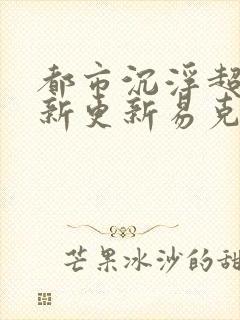 都市沉浮超
新更新易克
芒果冰沙的甜